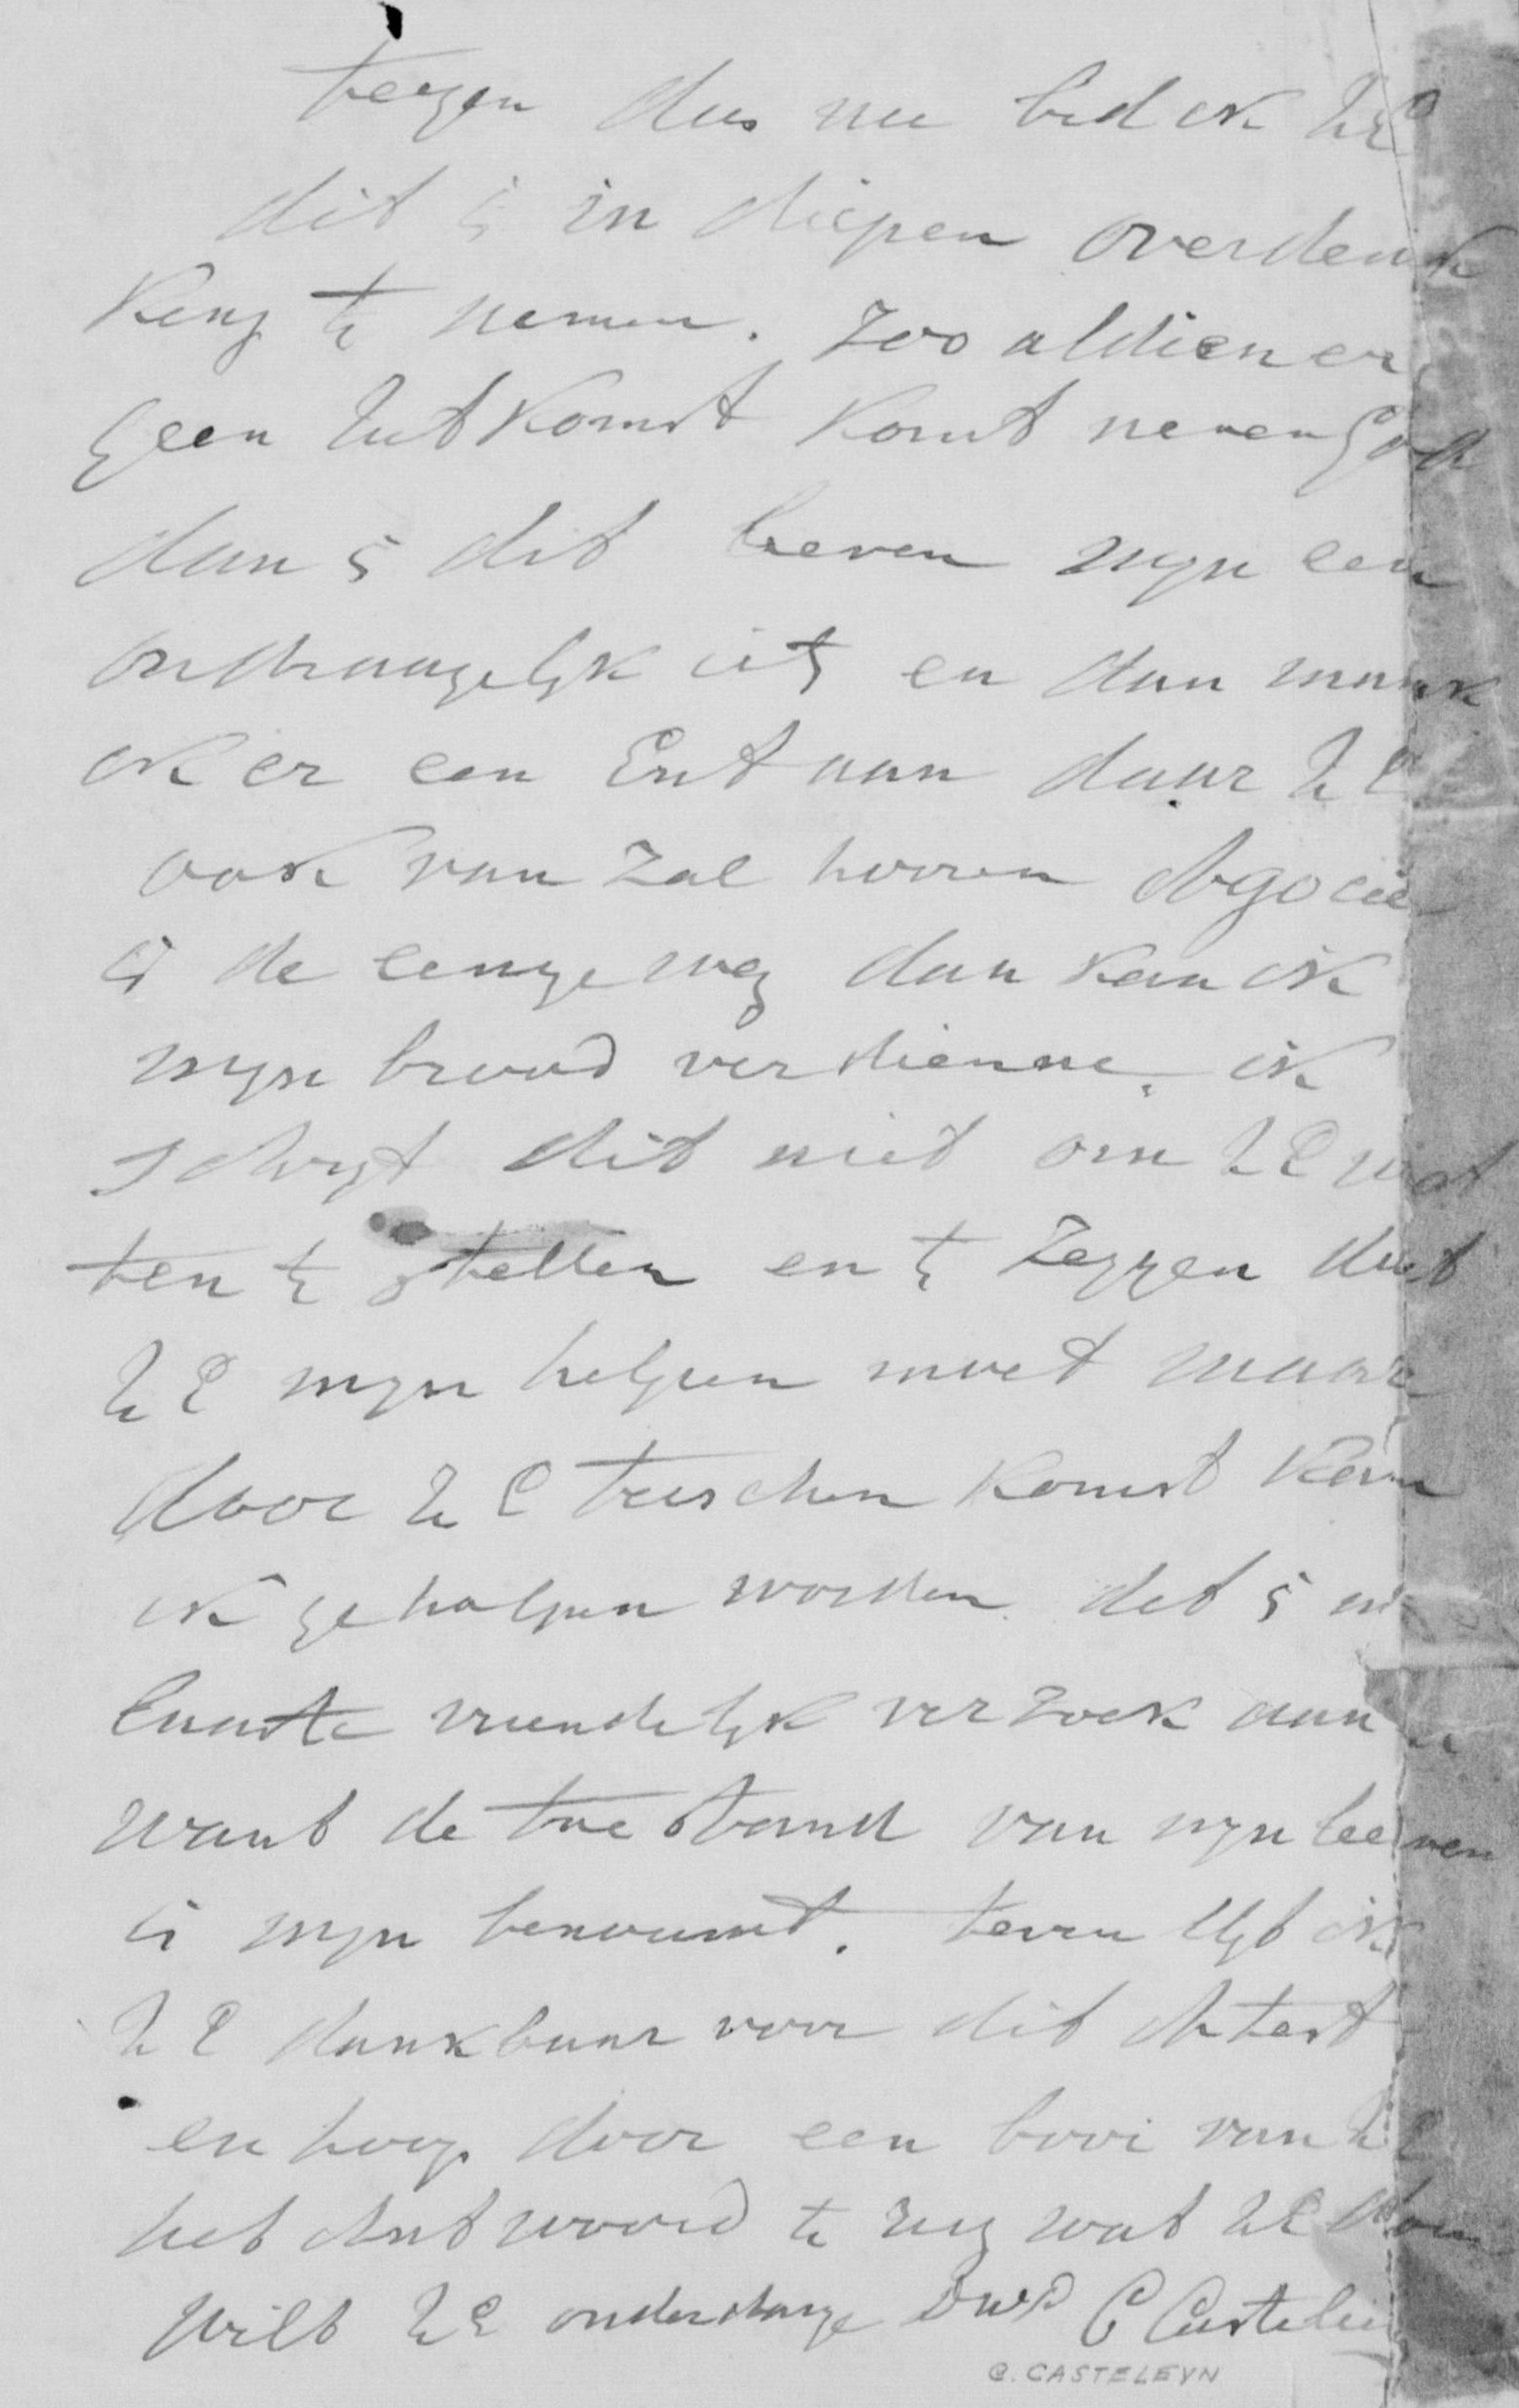 tergen dus nu bid ik UE
dit is in diepen overdenk
king te nemen. zoo aldien er
geen uutkomst komt neven God
dan is dit leeven mijn een
ondraagelijk iets en dan maak
ik er een Ent aan daar UE
ook van zal hooren Agocie
is de eenige weg dan kan ik
mijn brood verdienne. ik
schrijt dit niet om UE wet
ten te stellen en te zeggen dat
UE mijn helpen moet maar
door UE tuschen komst kan
ik geholpen worden. det is m
laaste vriendelijk verzoek aan u
want de toestand van mijn leeven
is mijn benoumt. teven blijf ik
UE dankbaar voor dit Atest
en hoop door een booi van UE
het Antwoord te rug wat UE doen
Wilt UE onderdange Dwd C Castelein
C. CASTELEYN